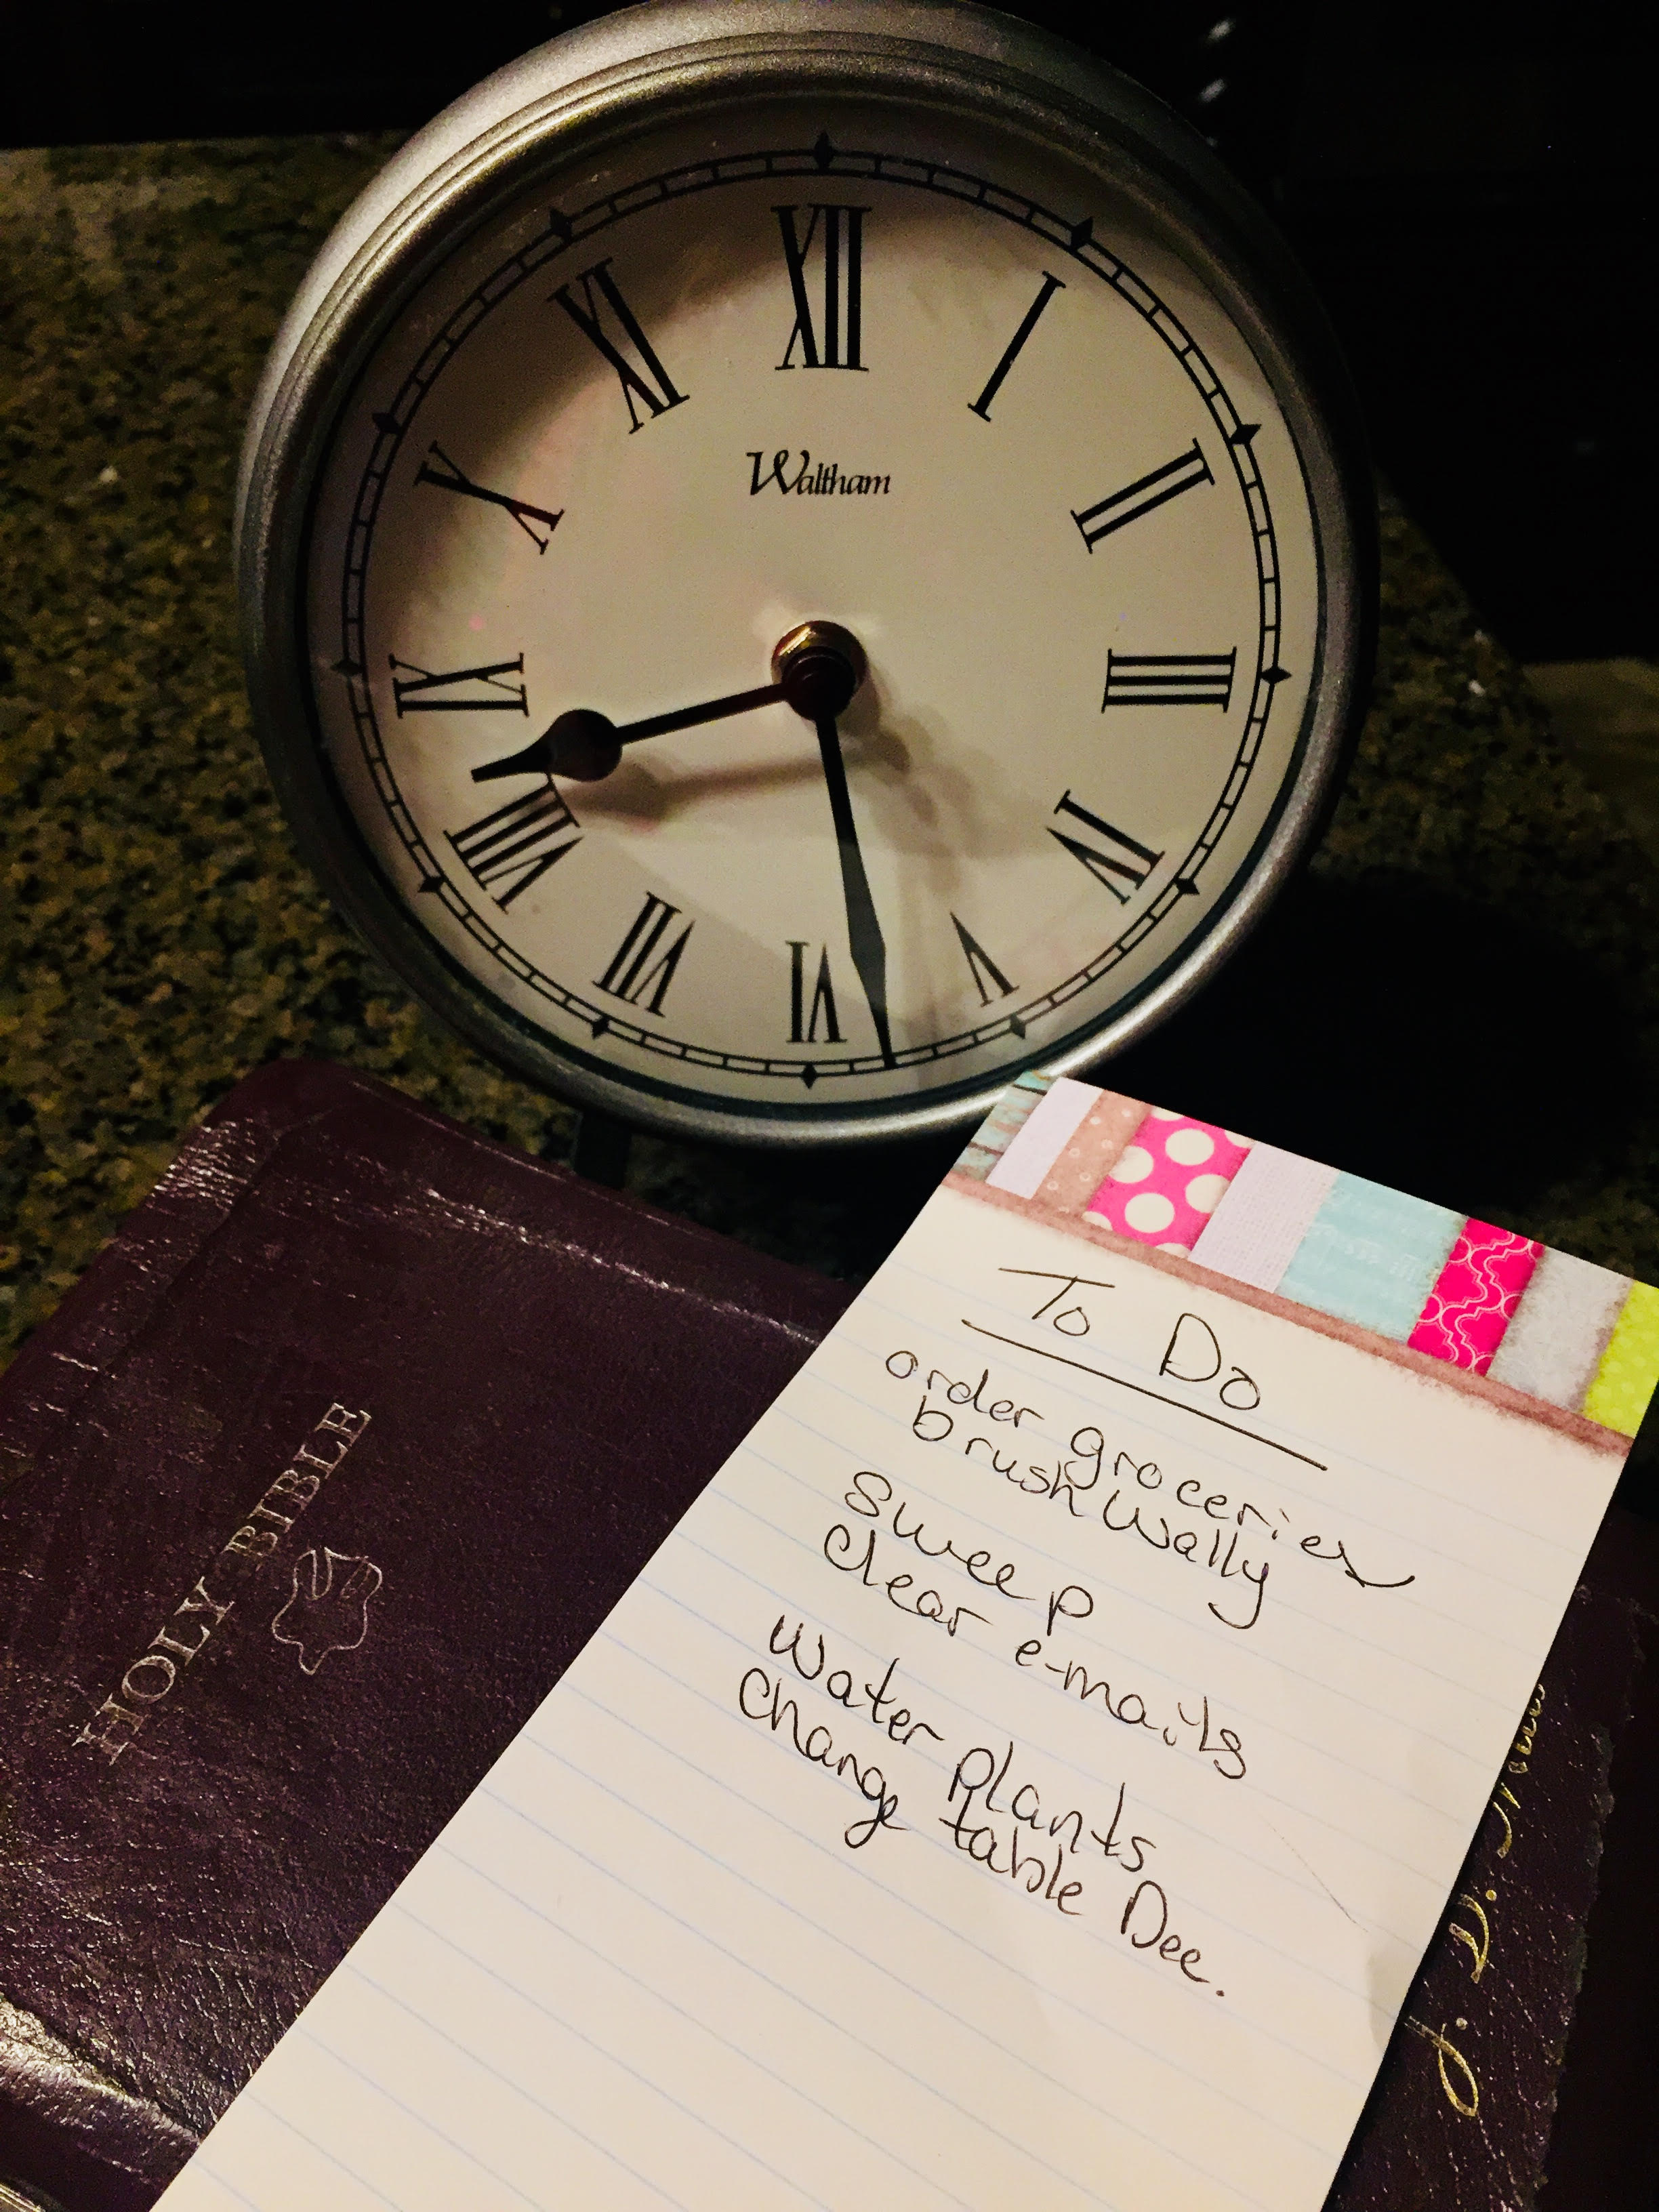 XII
I
II
III
IV
V
VI
VII
VIII
IX
X
XI
Waltham
To Do
order groceries
brush Wally
Sweep
Clear e-mails
Water plants
Change table Dec.
HOLY BIBLE
J. D.